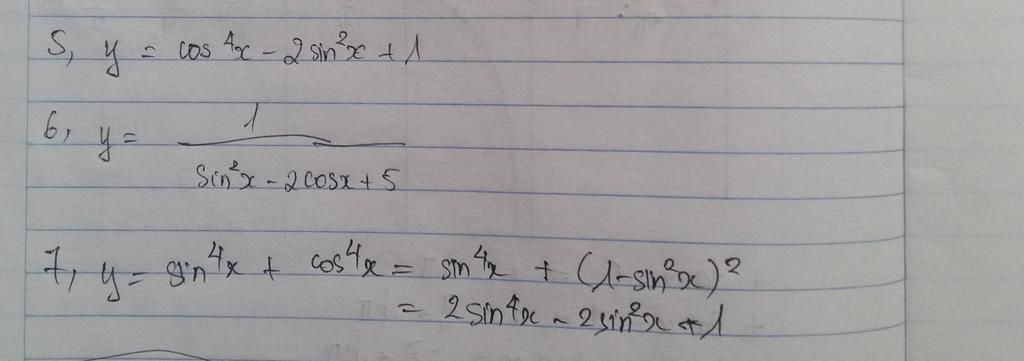 5, y = cos⁴x - 2sin²x + 1
6, y = 1
sin²x - 2cosx + 5
7, y = sin⁴x + cos⁴x = sin⁴x + (1-sin²x)²
= 2sin⁴x - 2sin²x + 1